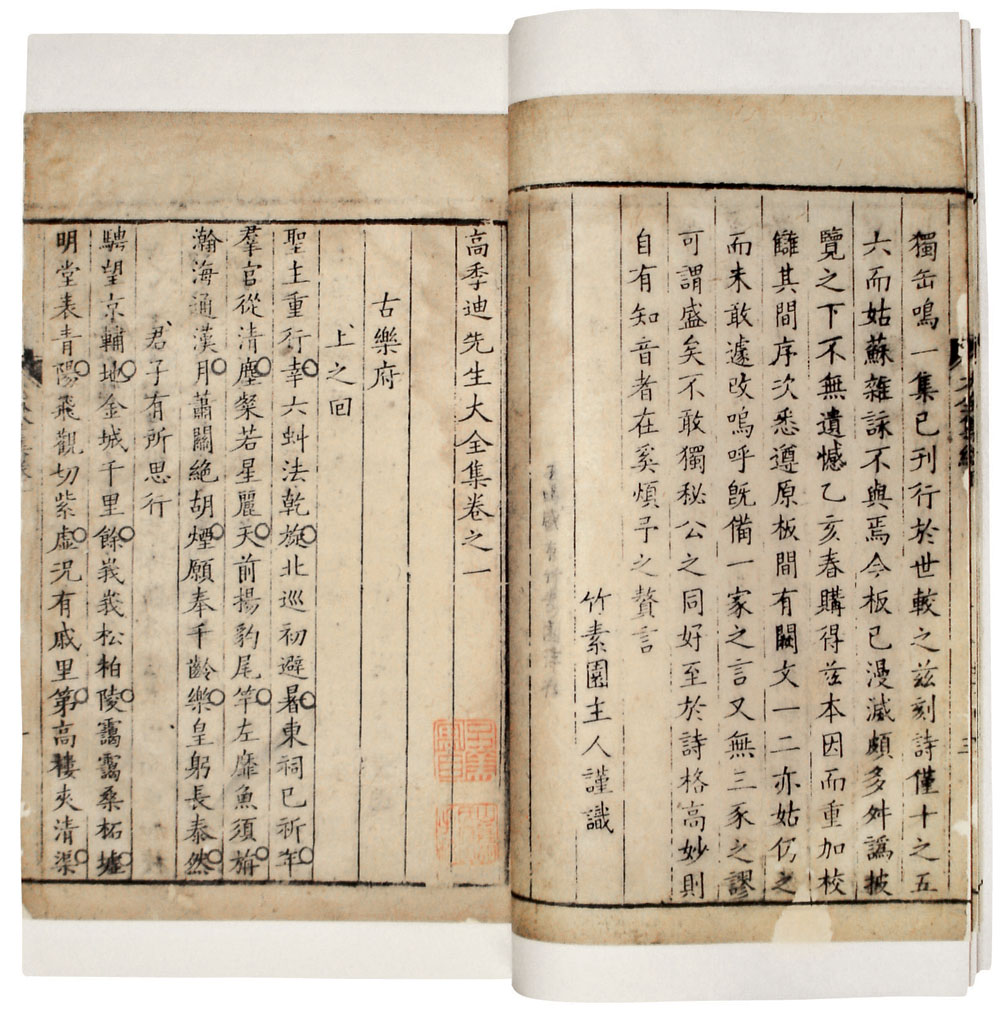 獨缶鳴一集已刊行於世較之茲刻詩僅十之五
六而姑蘇雜詠不與焉今板已漫滅頗多舛譌披
覽之下不無遺憾乙亥春購得茲本因而重加校
讎其間序次悉遵原板間有闕文一二亦姑仍之
而未敢遽改嗚呼旣備一家之言又無三豕之謬
可謂盛矣不敢獨秘公之同好至於詩格高妙則
自有知音者在奚煩予之贅言
竹素園主人謹識
高季迪先生大全集卷之一
古樂府
上之回
聖主重行幸六虯法乾旋北巡初避暑東祠已祈年
羣官從清塵粲若星麗天前揚豹尾竿左靡魚須旃
瀚海通漢月蕭關絕胡煙願奉千齡樂皇躬長泰然
君子有所思行
騁望京輔地金城千里餘峩峩松柏陵靄靄桑柘墟
明堂表青陽飛觀切紫虛況有戚里第高樓夾清渠